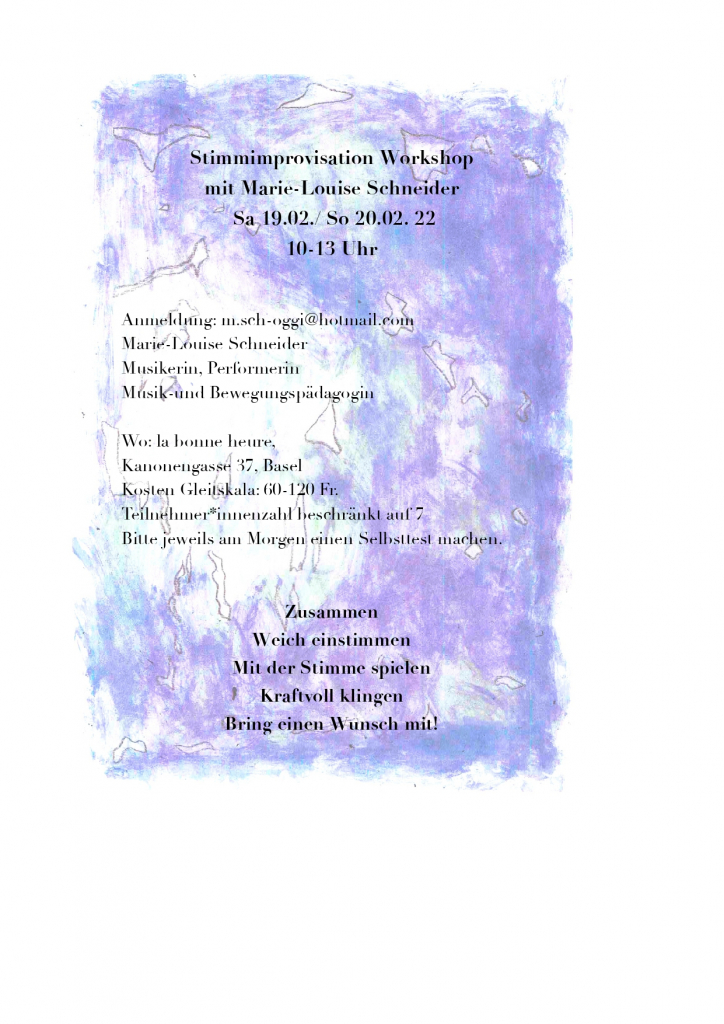 Stimmimprovisation Workshop
mit Marie-Louise Schneider
Sa 19.02./ So 20.02. 22
10-13 Uhr
Anmeldung: m.sch-oggi@hotmail.com
Marie-Louise Schneider
Musikerin, Performerin
Musik-und Bewegungspädagogin
Wo: la bonne heure,
Kanonengasse 37, Basel
Kosten Gleitskala: 60-120 Fr.
Teilnehmer*innenzahl beschränkt auf 7
Bitte jeweils am Morgen einen Selbsttest machen.
Zusammen
Weich einstimmen
Mit der Stimme spielen
Kraftvoll klingen
Bring einen Wunsch mit!